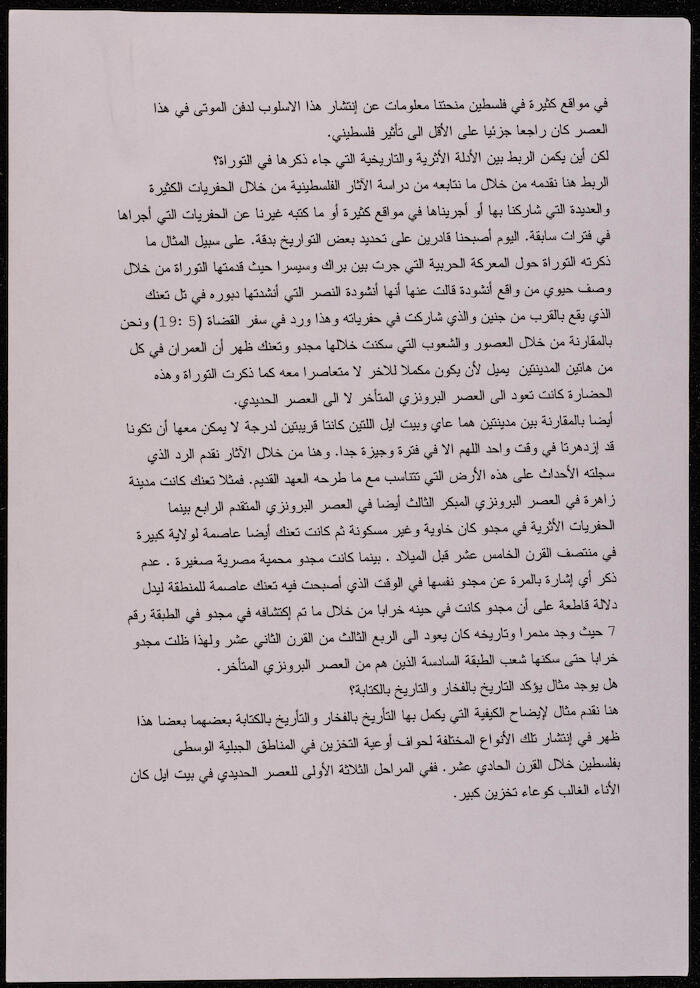 في مواقع كثيرة في فلسطين منحتنا معلومات عن إنتشار هذا الاسلوب لدفن الموتى في هذا
العصر كان راجعا جزئيا على الأقل الى تأثير فلسطيني.
لكن أين يكمن الربط بين الأدلة الأثرية والتاريخية التي جاء ذكرها في التوراة؟
الربط هنا نقدمه من خلال ما نتابعه من دراسة الآثار الفلسطينية من خلال الحفريات الكثيرة
والعديدة التي شاركنا بها أو أجريناها في مواقع كثيرة أو ما كتبه غيرنا عن الحفريات التي أجراها
في فترات سابقة. اليوم أصبحنا قادرين على تحديد بعض التواريخ بدقة. على سبيل المثال ما
ذكرته التوراة حول المعركة الحربية التي جرت بين براك وسيسرا حيث قدمتها التوراة من خلال
وصف حيوي من واقع أنشودة قالت عنها أنها أنشودة النصر التي أنشدتها دبوره في تل تعنك
الذي يقع بالقرب من جنين والذي شاركت في حفرياته وهذا ورد في سفر القضاة (5 :19) ونحن
بالمقارنة من خلال العصور والشعوب التي سكنت خلالها مجدو وتعنك ظهر أن العمران في كل
من هاتين المدينتين يميل لأن يكون مكملا للاخر لا متعاصرا معه كما ذكرت التوراة وهذه
الحضارة كانت تعود الى العصر البرونزي المتأخر لا الى العصر الحديدي.
أيضا بالمقارنة بين مدينتين هما عاي وبيت ايل اللتين كانتا قريبتين لدرجة لا يمكن معها أن تكونا
قد إزدهرتا في وقت واحد اللهم الا في فترة وجيزة جدا. وهنا من خلال الآثار نقدم الرد الذي
سجلته الأحداث على هذه الأرض التي تتناسب مع ما طرحه العهد القديم. فمثلا تعنك كانت مدينة
زاهرة في العصر البرونزي المبكر الثالث أيضا في العصر البرونزي المتقدم الرابع بينما
الحفريات الأثرية في مجدو كان خاوية وغير مسكونة ثم كانت تعنك أيضا عاصمة لولاية كبيرة
في منتصف القرن الخامس عشر قبل الميلاد . بينما كانت مجدو محمية مصرية صغيرة . عدم
ذكر أي إشارة بالمرة عن مجدو نفسها في الوقت الذي أصبحت فيه تعنك عاصمة للمنطقة ليدل
دلالة قاطعة على أن مجدو كانت في حينه خرابا من خلال ما تم إكتشافه في مجدو في الطبقة رقم
7 حيث وجد مدمرا وتاريخه كان يعود الى الربع الثالث من القرن الثاني عشر ولهذا ظلت مجدو
خرابا حتى سكنها شعب الطبقة السادسة الذين هم من العصر البرونزي المتأخر.
هل يوجد مثال يؤكد التاريخ بالفخار والتاريخ بالكتابة؟
هنا نقدم مثال لإيضاح الكيفية التي يكمل بها التأريخ بالفخار والتأريخ بالكتابة بعضهما بعضا هذا
ظهر في إنتشار تلك الأنواع المختلفة لحواف أوعية التخزين في المناطق الجبلية الوسطى
بفلسطين خلال القرن الحادي عشر. ففي المراحل الثلاثة الأولى للعصر الحديدي في بيت ايل كان
الأناء الغالب كوعاء تخزين كبير.